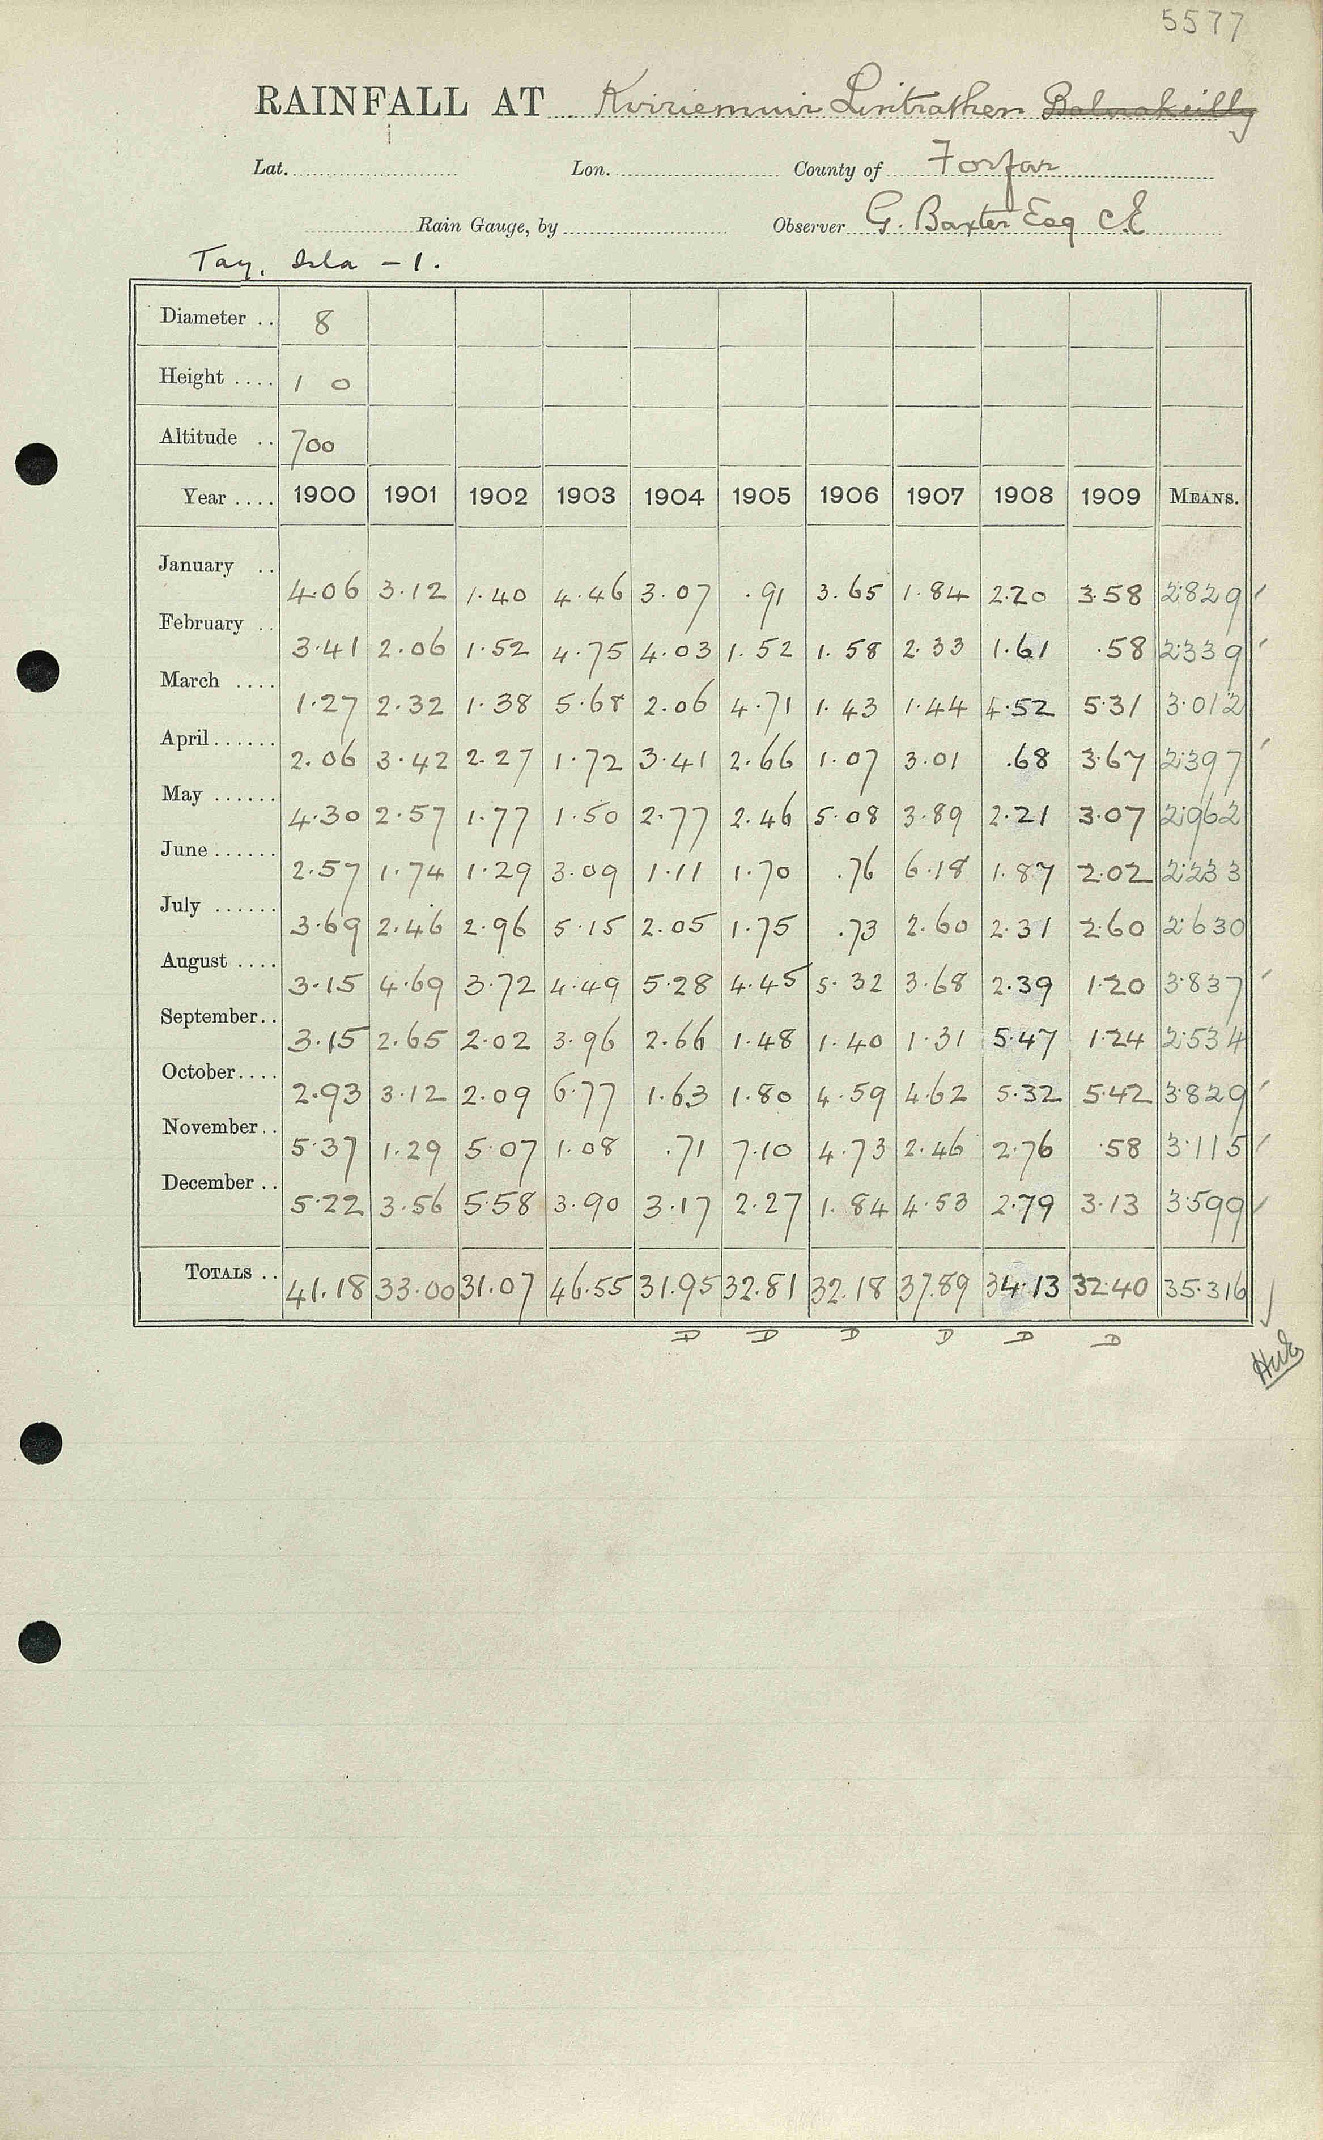 5577
RAINFALL AT Kirriemuir Lintrathen Balnakeilly
Lat. Lon. County of Forfar
Rain Gauge, by Observer G. Baxter Esq C.E
Tay, Isla - 1.
Diameter .. 8
Height .... 1 0
Altitude .. 700
Year .... 1900 1901 1902 1903 1904 1905 1906 1907 1908 1909 MEANS.
January .. 4.06 3.12 1.40 4.46 3.07 .91 3.65 1.84 2.20 3.58 2.829
February .. 3.41 2.06 1.52 4.75 4.03 1.52 1.58 2.33 1.61 .58 2.339
March .... 1.27 2.32 1.38 5.68 2.06 4.71 1.43 1.44 4.52 5.31 3.012
April ...... 2.06 3.42 2.27 1.72 3.41 2.66 1.07 3.01 .68 3.67 2.397
May ...... 4.30 2.57 1.77 1.50 2.77 2.46 5.08 3.89 2.21 3.07 2.962
June ...... 2.57 1.74 1.29 3.09 1.11 1.70 .76 6.18 1.87 2.02 2.233
July ...... 3.69 2.46 2.96 5.15 2.05 1.75 .73 2.60 2.31 2.60 2.630
August .... 3.15 4.69 3.72 4.49 5.28 4.45 5.32 3.68 2.39 1.20 3.837
September .. 3.15 2.65 2.02 3.96 2.66 1.48 1.40 1.31 5.47 1.24 2.534
October .... 2.93 3.12 2.09 6.77 1.63 1.80 4.59 4.62 5.32 5.42 3.829
November .. 5.37 1.29 5.07 1.08 .71 7.10 4.73 2.46 2.76 .58 3.115
December .. 5.22 3.56 5.58 3.90 3.17 2.27 1.84 4.53 2.79 3.13 3.599
TOTALS .. 41.18 33.00 31.07 46.55 31.95 32.81 32.18 37.89 34.13 32.40 35.316
D D D D D D